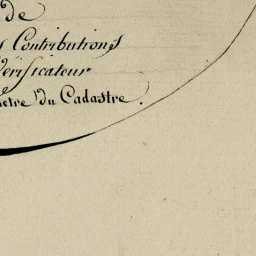 de
Contributions
Vérificateur
du Cadastre.